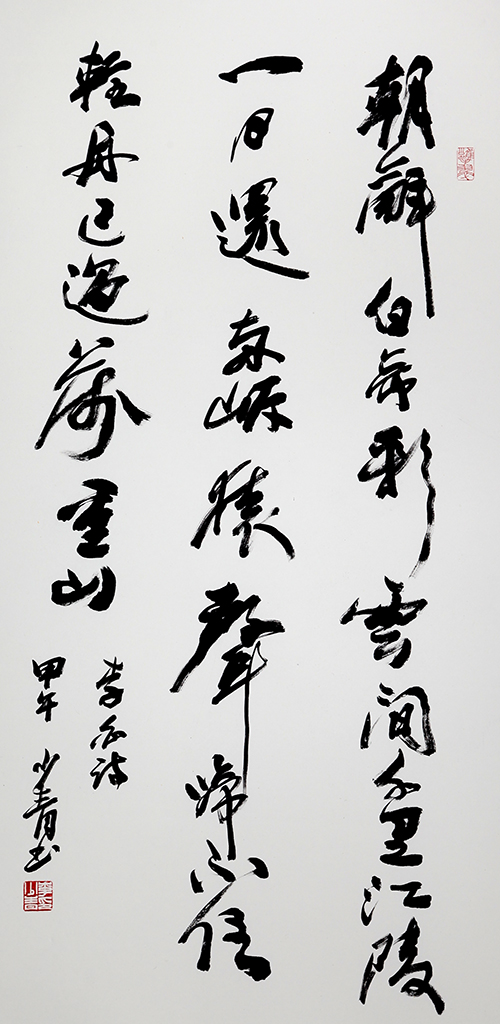 朝辭白帝彩雲間千里江陵
一日還兩岸猿聲啼不住
輕舟已過萬重山
李白詩
甲午少青书